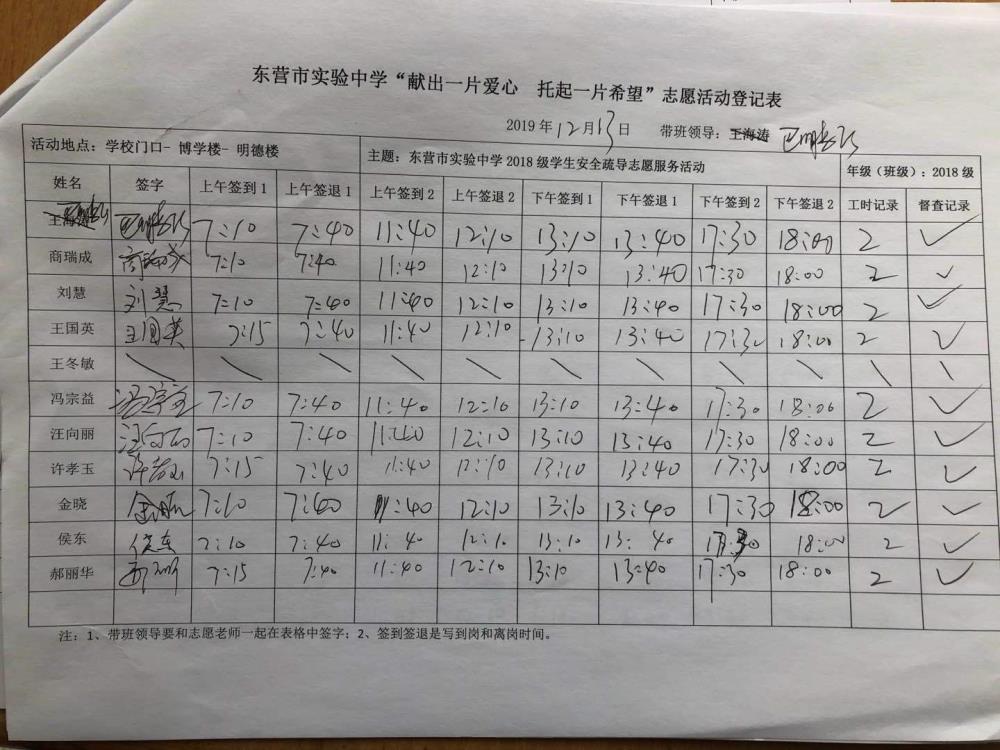 东营市实验中学“献出一片爱心 托起一片希望”志愿活动登记表
2019年12月13日 带班领导：王海涛
活动地点：学校门口- 博学楼- 明德楼 主题：东营市实验中学2018级学生安全疏导志愿服务活动 年级（班级）：2018级
姓名 签字 上午签到1 上午签退1 上午签到2 上午签退2 下午签到1 下午签退1 下午签到2 下午签退2 工时记录 督查记录
王海涛 7:10 7:40 11:40 12:10 13:10 13:40 17:30 18:00 2 ✓
商瑞成 商瑞成 7:10 7:40 11:40 12:10 13:10 13:40 17:30 18:00 2 ✓
刘慧 刘慧 7:10 7:40 11:40 12:10 13:10 13:40 17:30 18:00 2 ✓
王国英 王国英 7:15 7:40 11:40 12:10 13:10 13:40 17:30 18:00 2 ✓
王冬敏 \ \ \ \ \ \ \ \ \ \ \
冯宗益 冯宗益 7:10 7:40 11:40 12:10 13:10 13:40 17:30 18:00 2 ✓
汪向丽 汪向丽 7:10 7:40 11:40 12:10 13:10 13:40 17:30 18:00 2 ✓
许孝玉 许孝玉 7:15 7:40 11:40 12:10 13:10 13:40 17:30 18:00 2 ✓
金晓 金晓 7:10 7:40 11:40 12:10 13:10 13:40 17:30 18:00 2 ✓
侯东 侯东 7:10 7:40 11:40 12:10 13:10 13:40 17:30 18:00 2 ✓
郝丽华 7:15 7:40 11:40 12:10 13:10 13:40 17:30 18:00 2 ✓
注：1、带班领导要和志愿老师一起在表格中签字；2、签到签退是写到岗和离岗时间。